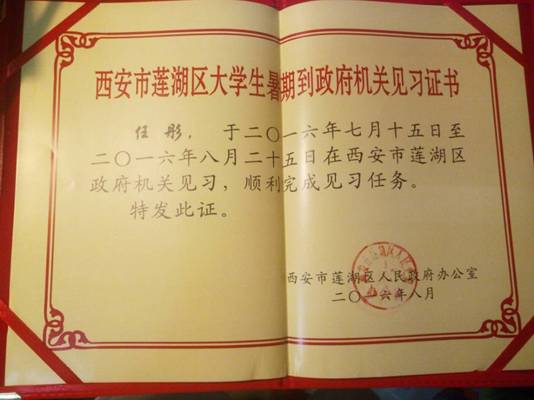 西安市莲湖区大学生暑期到政府机关见习证书
任彤，于二〇一六年七月十五日至
二〇一六年八月二十五日在西安市莲湖区
政府机关见习，顺利完成见习任务。
特发此证。
西安市莲湖区人民政府办公室
二〇一六年八月